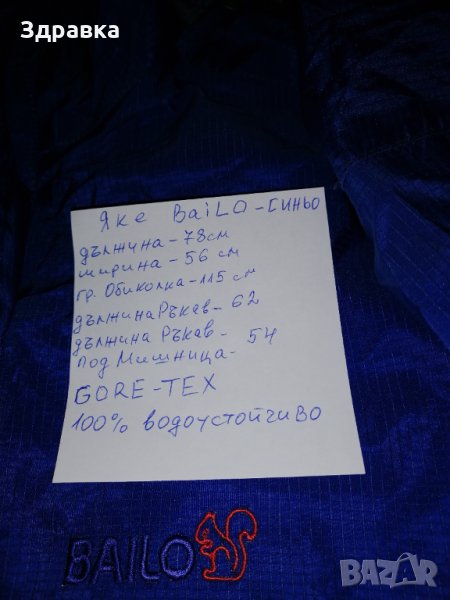 Здравка
Яке BaiLO - СИНЬО
дължина - 78см
ширина - 56 см
гр. Обиколка - 115 см
дължина Ръкав - 62
дължина Ръкав -
под Мишница - 54
GORE-TEX
100% водоустойчиво
BAILO
BAZAR